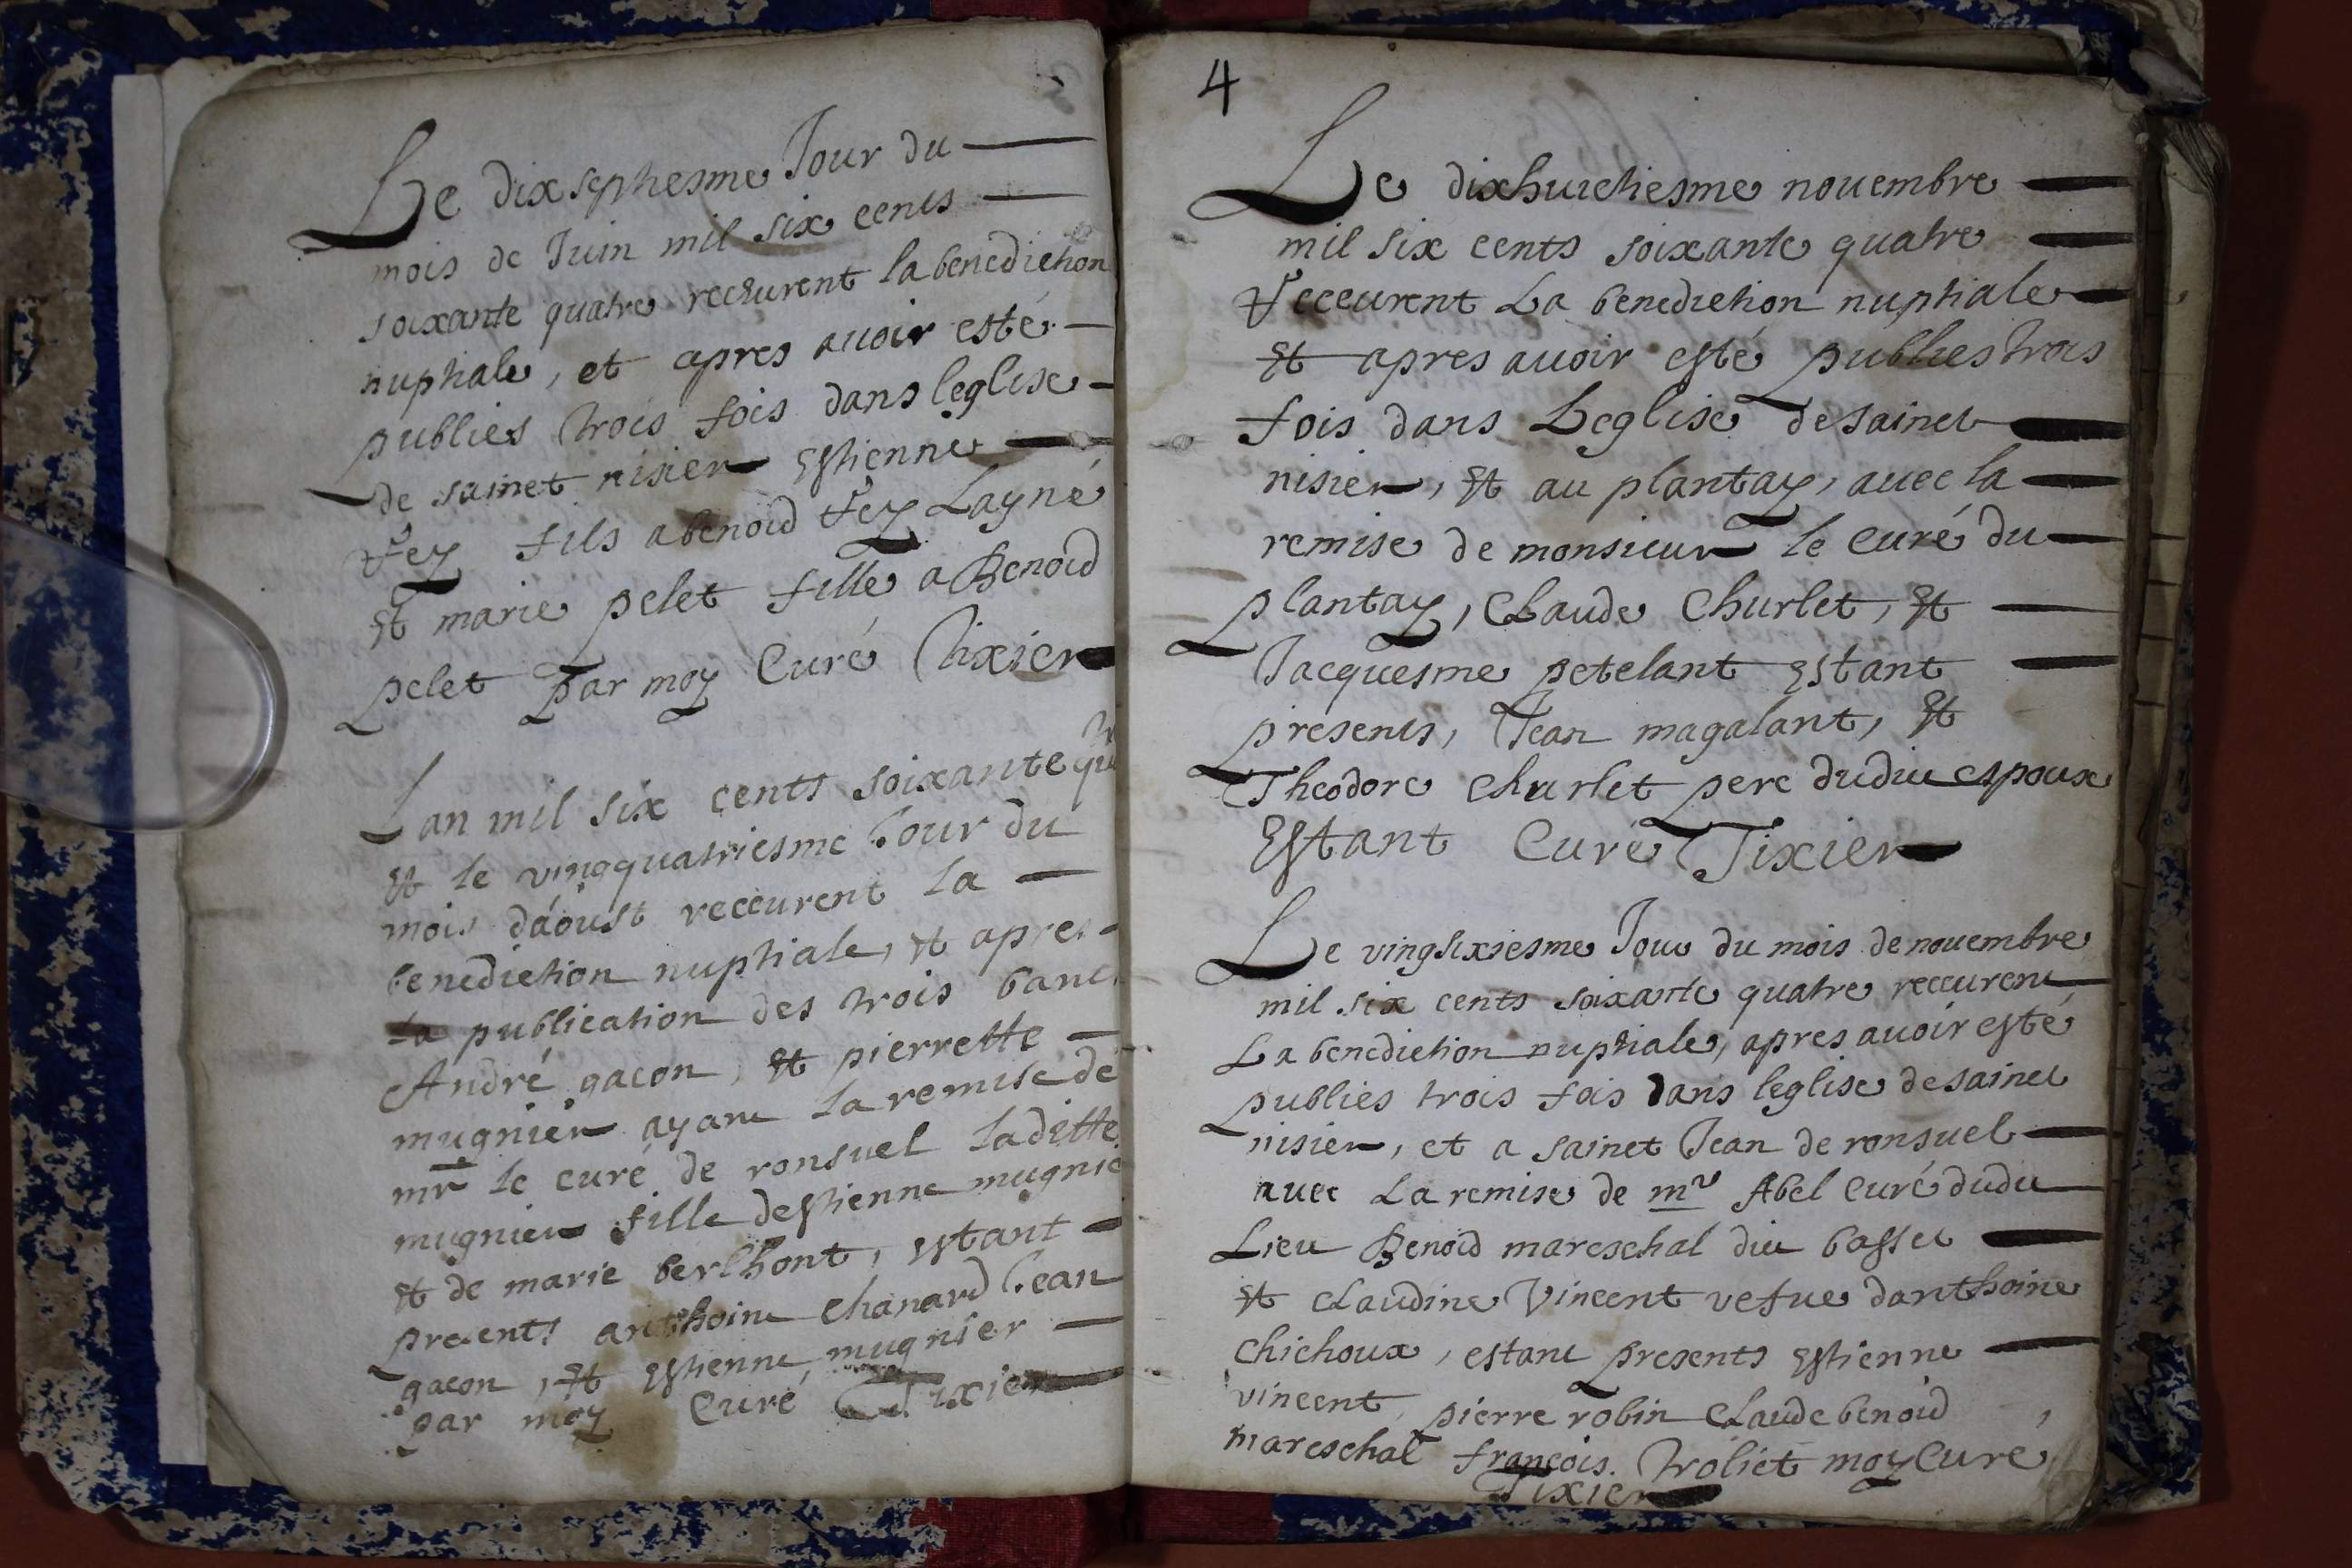 Le dixseptiesme Jour du
mois de Juin mil six cents
soixante quatre receurent la benediction
nuptiale, et apres auoir esté
publiés trois fois dans leglise
de sainct nisier Estienne
fey fils a benoid fey Layné
Et marie pelet fille a Benoid
pelet par moy Curé Tixier
Lan mil six cents soixante qu
tr
Et le vingquatriesme Jour du
mois d'aoust receurent la
benediction nuptiale, Et apres
la publication des trois banc
André gacon, Et pierrette
mugnier ayant la remise de
mr le curé de ronsuel laditte
mugnier fille destienne mugnie
Et de marie berlhont, Estant
presents anthoine chanard Jean
gacon, Et Estienne mugnier
par moy Curé Tixier
4
Le dixhuictiesme nouembre
mil six cents soixante quatre
receurent La benediction nuptiale
Et apres auoir esté publies trois
fois dans Leglise de sainct
nisier, Et au plantay, auec la
remise de monsieur le Curé du
plantay, Claude Churlet, Et
Jacquesme petelant Estant
presents, Jean magalant, Et
Theodore Churlet pere dudict espoux
Estant Curé Tixier
Le vingsixiesme Jour du mois de nouembre
mil six cents soixante quatre receurent
La benediction nuptiale, apres auoir esté
publiés trois fois dans leglise de sainct
nisier, et a sainct Jean de ronsuel
auec La remise de mr Abel Curé dudit
Lieu Benoid mareschal dict basset
Et Claudine Vincent vefue danthoine
Chichoux, estant presents Estienne
vincent, pierre robin Claude benoid
mareschal françois troliet moy Curé
Tixier